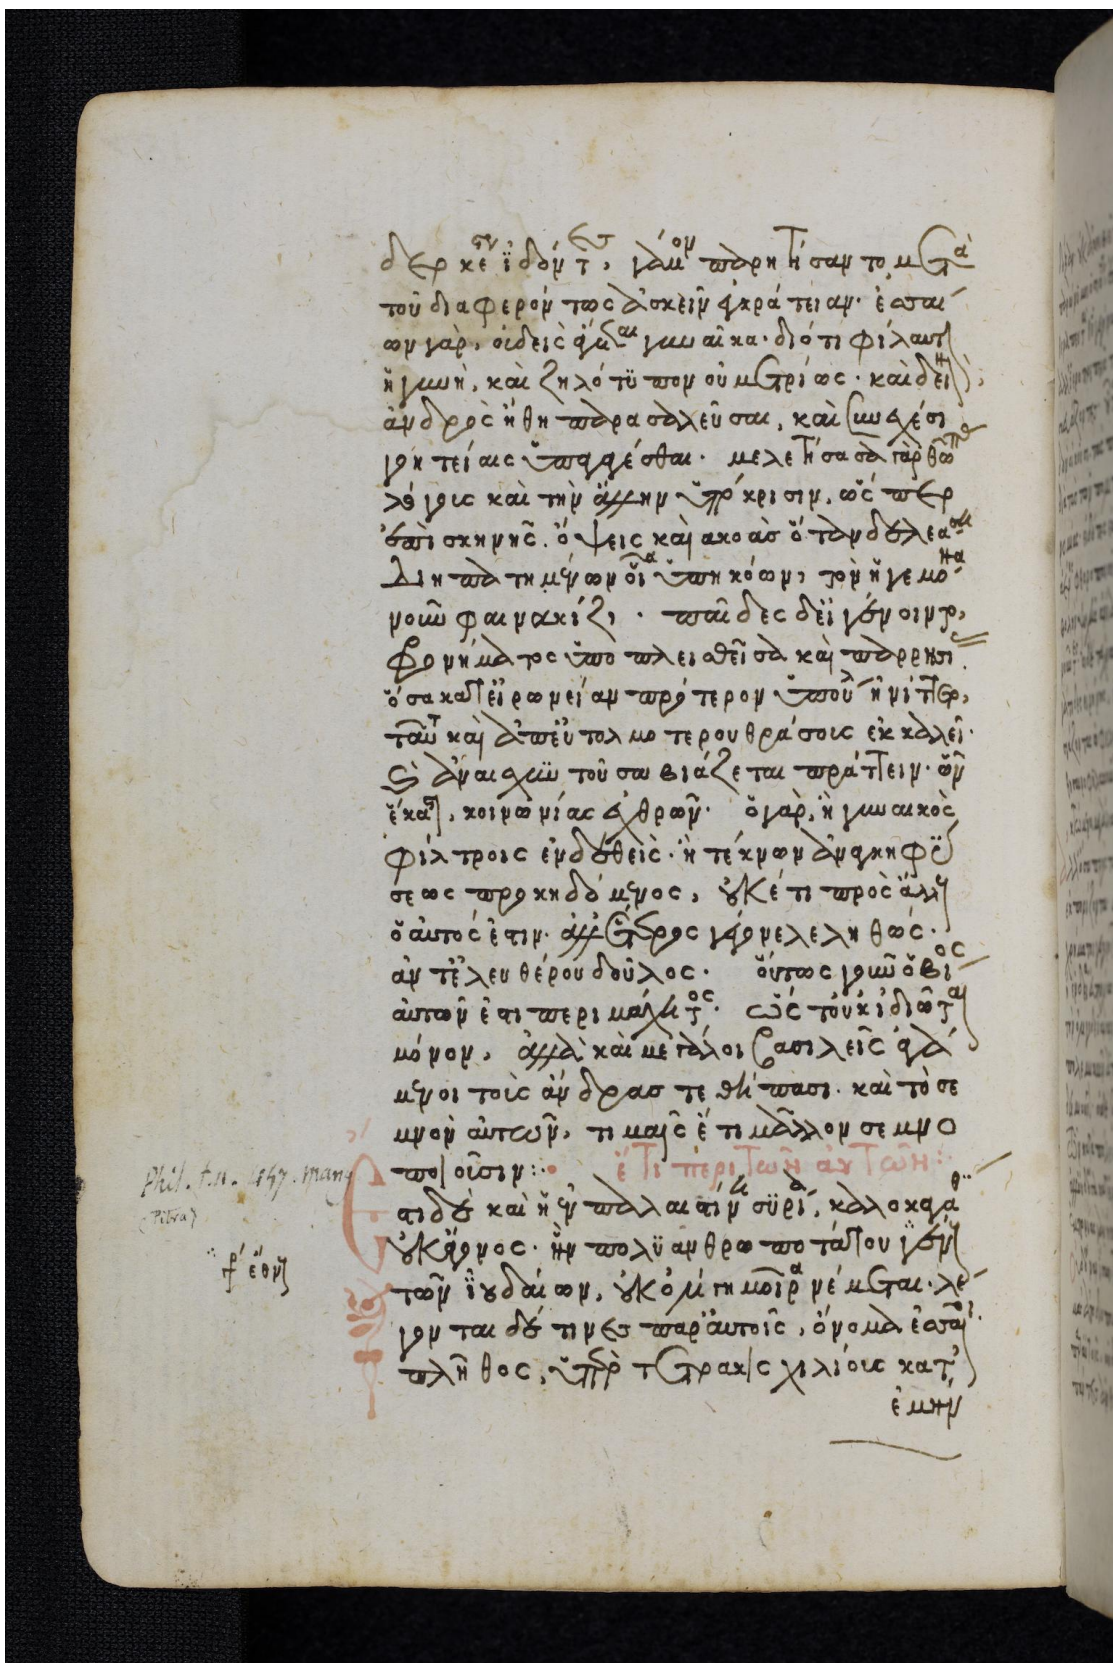 δερκεν ἰδόντες, γάμον παρῃτήσαντο μετὰ
τοῦ διαφερόντως ἀσκεῖν ἐγκράτειαν· ἐσσαί
ων γὰρ, οὐδεὶς ἄγεται γυναῖκα· διότι φίλαυτ
ἡ γυνὴ, καὶ ζηλότυπον οὐ μετρίως· καὶ δεινὴ
ἀνδρὸς ἤθη παρασαλεῦσαι, καὶ συνεχέσι
γοητείαις ὑπάγεσθαι· μελετήσασα γὰρ θῶπας
λόγους καὶ τὴν ἄλλην ὑπόκρισιν, ὥσπερ
ἐπὶ σκηνῆς. ὄψεις καὶ ἀκοὰς ὅταν δελεάσῃ
διηπατημένων οἷα ὑπηκόων, τὸν ἡγεμόνα
νοῦν φαινακίζει · παῖδες δ' εἰ γένοιντο,
φρονήματος ὑποπλεισθεῖσα καὶ παρρησί
ὅσα κατ' εἰρωνείαν πρότερον ὑπούλ ἠνίττετο,
ταῦτα καὶ ἀπ' εὐτολμοτέρου θράσους ἐκκαλεῖ·
καὶ ἀναισχυντοῦσα βιάζεται πράττειν· ὧν
ἕκαστ, κοινωνίας ἐχθρῶν· ὁ γὰρ, ἢ γυναικὸς
φίλτροις ἐνδεθεὶς· ἢ τέκνων ἀνάγκῃ φύ
σεως προκηδόμενος, οὐκέτι πρὸς ἄλλ
ὁ αὐτός ἐστιν· ἀλλ' ἕτερος γέγονε λεληθώς·
ἀντ' ἐλευθέρου δοῦλος· οὕτως γοῦν ὁ βίος
αὐτῶν ἐστι περιμάχητος· ὡς τ' οὐκ ἰδιῶται
μόνον, ἀλλὰ καὶ μεγάλοι βασιλεῖς ἀγά
μενοι τοὺς ἄνδρας τεθήπασι· καὶ τὸ σε
μνὸν αὐτῶν, τιμαῖς ἔτι μᾶλλον σεμνο
ποιοῦσιν: ἔτι περὶ τῶν αὐτῶν:
Phil. t. II. 457. mang
Ἔστι δὲ καὶ ἡ ἐν παλαιστίνη συρία, καλοκαγαθ
(Pitra)
οὐκ ἄγονος· ἣν πολυανθρωποτάτου γέν
τῶν ἰουδαίων, οὐκ ὀλίγη μοῖρα νέμεται· λέ
γονται δέ τινες παρ' αὐτοῖς, ὄνομα ἐσσαῖοι·
πλῆθος, ὑπὲρ τετρακισχιλίους κατ'
ἐμὴν